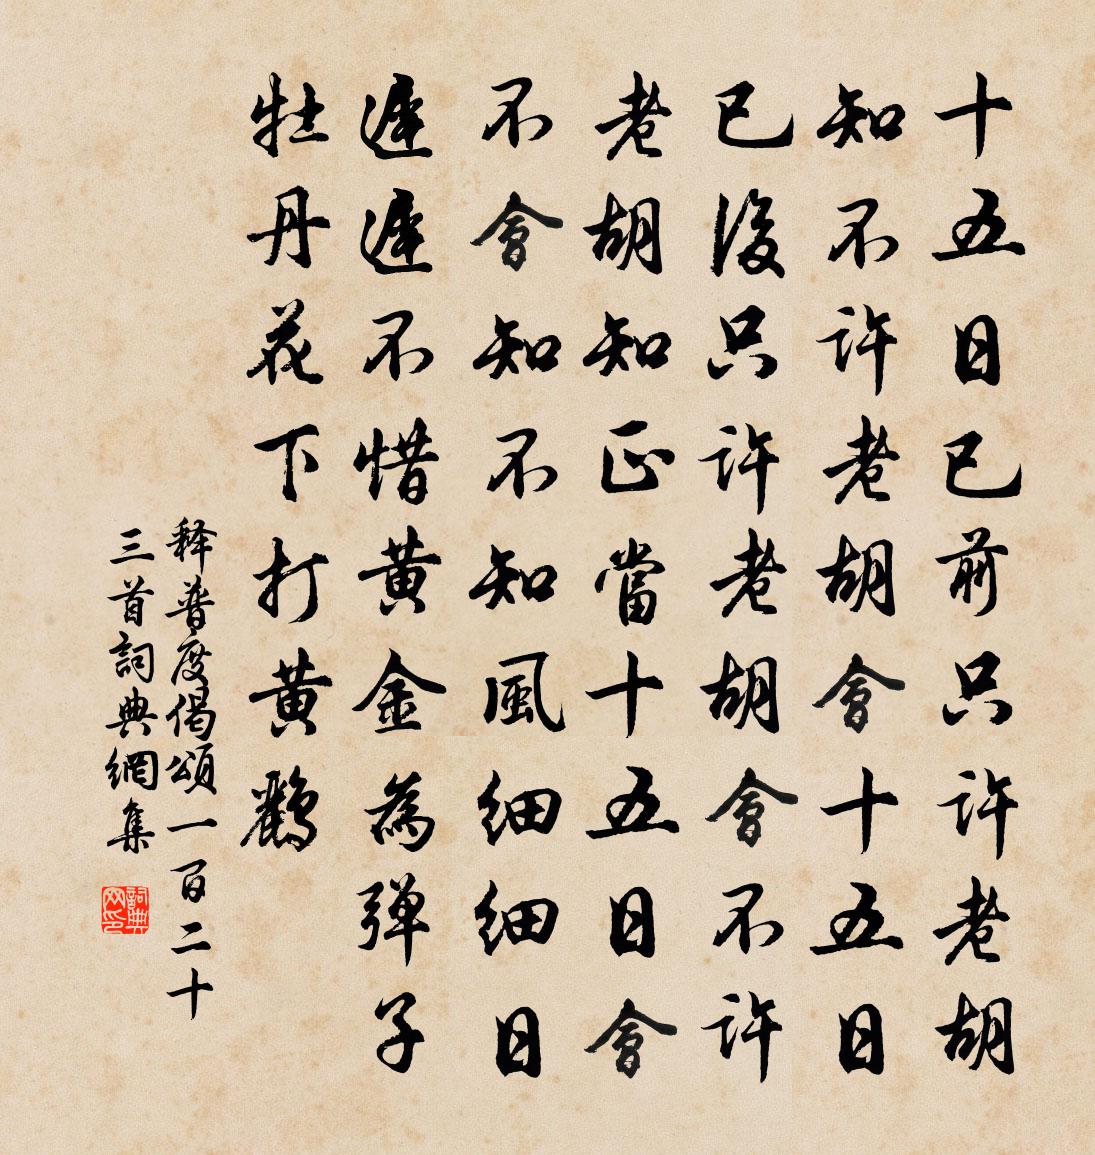 十五日已前只許老胡
知不許老胡會十五日
已後只許老胡會不許
老胡知正當十五日會
不會知不知風細細日
遲遲不惜黃金為彈子
牡丹花下打黃鸝
释普度偈頌一百二十
三首詞典網集
詞典网印